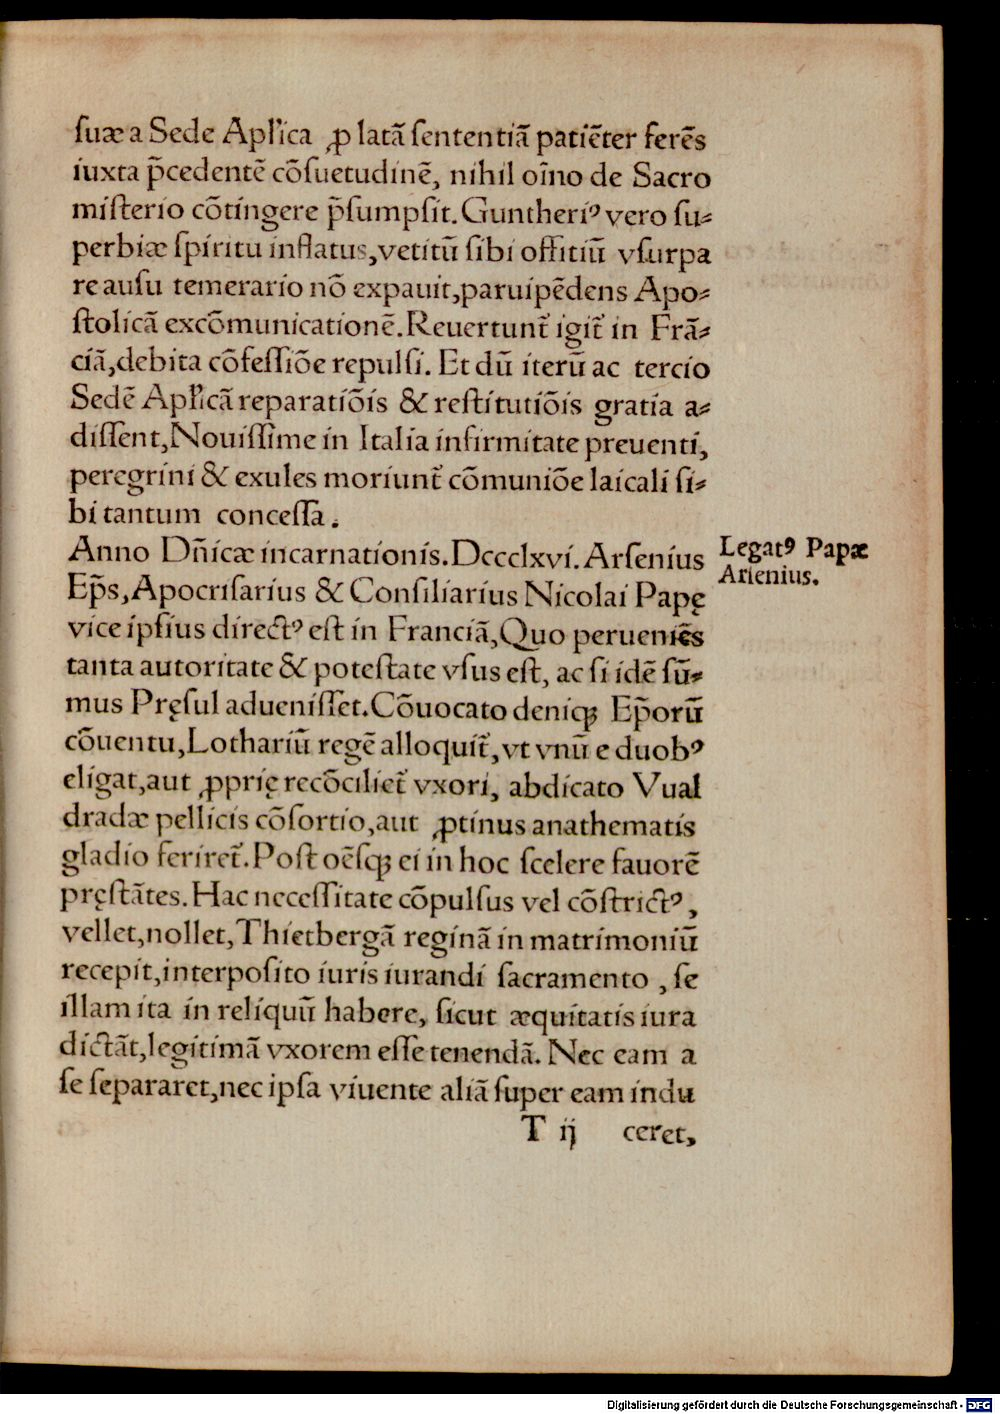 ſuæ a Sede Apl'ica ꝓ latā ſententiā patiēter ferēs
iuxta p̄cedentē cōſuetudinē, nihil oīno de Sacro
miſterio cōtingere p̄ſumpſit. Guntheriꝰ vero ſu⸗
perbiæ ſpiritu inflatus, vetitū ſibi offitiū vſurpa
re auſu temerario nō expauit, paruipēdens Apo⸗
ſtolicā excōmunicationē. Reuertunt᷑ igit᷑ in Frā⸗
ciā, debita cōfeſſiōe repulſi. Et dū iterū ac tercio
Sedē Apl'icā reparatiōis & reſtitutiōis gratia a⸗
diſſent, Nouiſſime in Italia infirmitate preuenti,
peregrini & exules moriunt᷑ cōmuniōe laicali ſi⸗
bi tantum conceſſa.
Anno Dn̄icæ incarnationis. Dccclxvi. Arſenius
Ep̄s, Apocriſarius & Conſiliarius Nicolai Papę
vice ipſius directꝰ eſt in Franciā, Quo perueniēs
tanta autoritate & poteſtate vſus eſt, ac ſi idē ſū⸗
mus Pręſul adueniſſet. Cōuocato deniqꝫ Ep̄orū
cōuentu, Lothariū regē alloquit᷑, vt vnū e duobꝰ
eligat, aut ꝓprię recōciliet᷑ vxori, abdicato Vual
dradæ pellicis cōſortio, aut ꝓtinus anathematis
gladio feriret᷑. Poſt oēſqꝫ ei in hoc ſcelere fauorē
pręſtātes. Hac neceſſitate cōpulſus vel cōſtrictꝰ,
vellet, nollet, Thietbergā reginā in matrimoniū
recepit, interpoſito iuris iurandi ſacramento, ſe
illam ita in reliquū habere, ſicut æquitatis iura
dictāt, legitimā vxorem eſſe tenendā. Nec eam a
ſe ſepararet, nec ipſa viuente aliā ſuper eam indu
T ij ceret,
Legatꝰ Papæ
Arſenius.
Digitalisierung gefördert durch die Deutsche Forschungsgemeinschaft - DFG